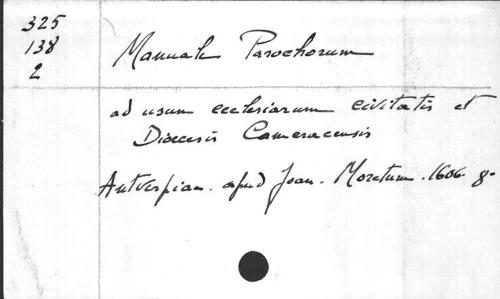 325
138
2
Manuale Parochorum
ad usum ecclesiarum civitatis et
Diocesis Cameracensis
Antverpiae. apud Joan. Moretum. 1606. 8º